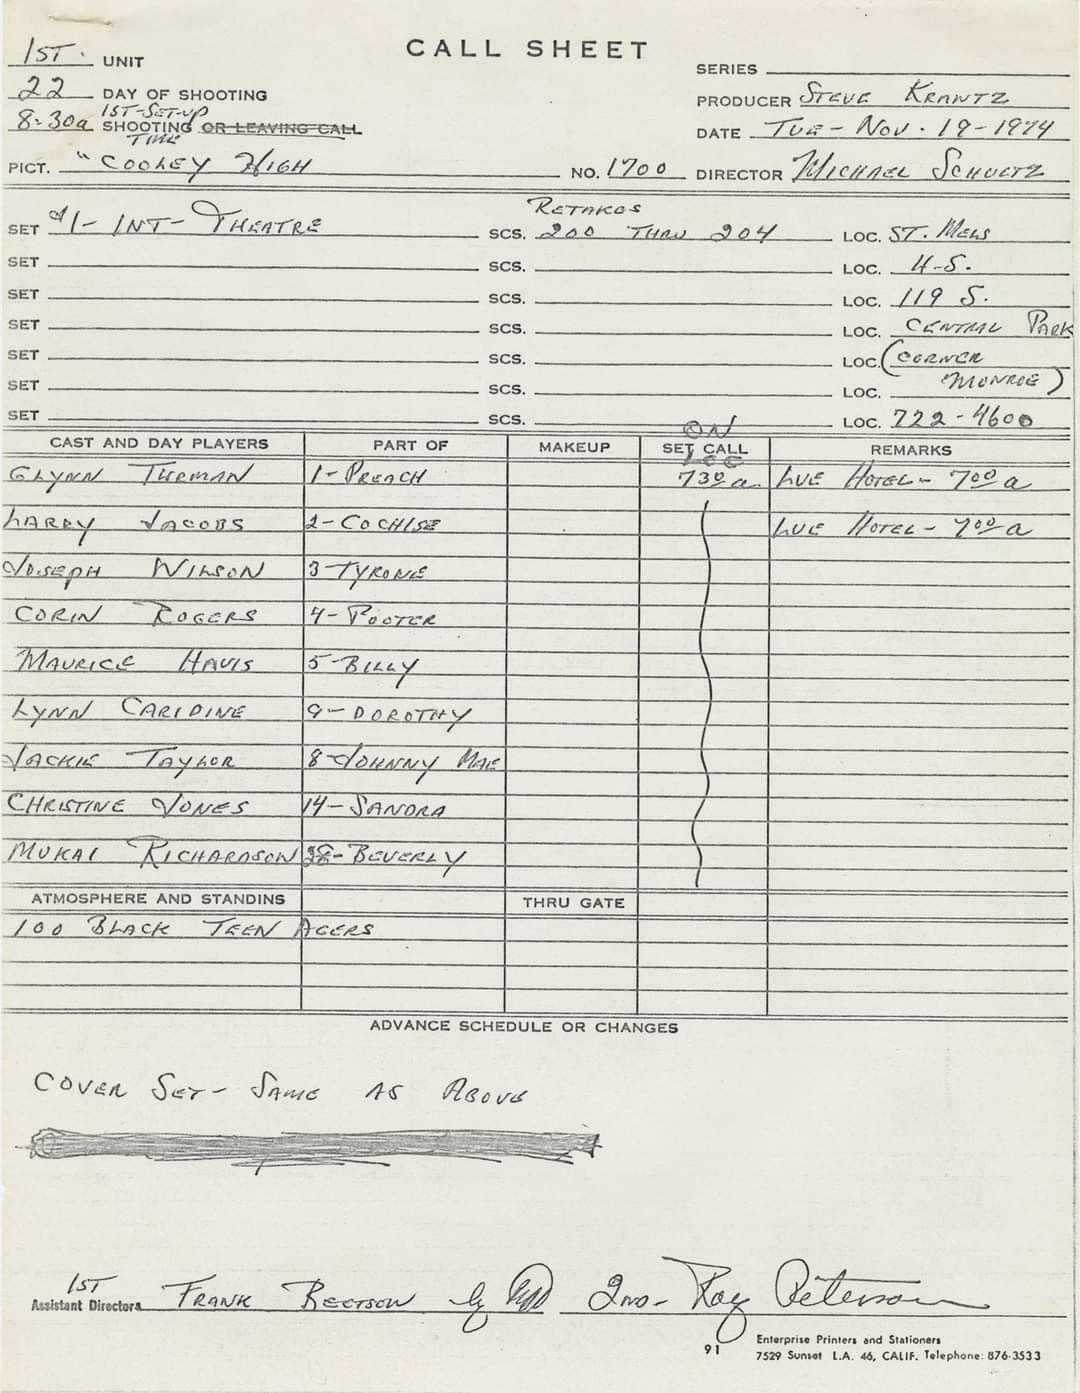 CALL SHEET
1ST. UNIT
SERIES
22 DAY OF SHOOTING
PRODUCER STEVE KRANTZ
1ST-SET-UP
8:30a SHOOTING OR LEAVING CALL
TIME
DATE TUE- NOV. 19-1974
PICT. "COOLEY HIGH NO. 1700 DIRECTOR MICHAEL SCHULTZ
RETAKES
SET #1- INT- THEATRE SCS. 200 THRU 204 LOC. ST. MELS
SET SCS. LOC. H-S.
SET SCS. LOC. 119 S.
SET SCS. LOC. CENTRAL PARK
SET SCS. LOC. (CORNER
SET SCS. LOC. MONROE)
SET SCS. LOC. 722-4600
ON
CAST AND DAY PLAYERS PART OF MAKEUP SET CALL REMARKS
LOC
GLYNN TURMAN 1-PREACH 730a. LVE HOTEL- 700a
LARRY JACOBS 2-COCHISE LVE HOTEL- 700a
JOSEPH WILSON 3-TYRONE
CORIN ROGERS 4-POOTER
MAURICE HAVIS 5-BILLY
LYNN CARIDINE 9-DOROTHY
JACKIE TAYLOR 8-JOHNNY MAE
CHRISTINE JONES 14-SANDRA
MUKAI RICHARDSON -BEVERLY
ATMOSPHERE AND STANDINS THRU GATE
100 BLACK TEEN AGERS
ADVANCE SCHEDULE OR CHANGES
COVER SET- SAME AS ABOVE
1ST
Assistant Directors FRANK BEETSON by 2ND- Ray Peterson
91
Enterprise Printers and Stationers
7529 Sunset L.A. 46, CALIF. Telephone: 876-3533